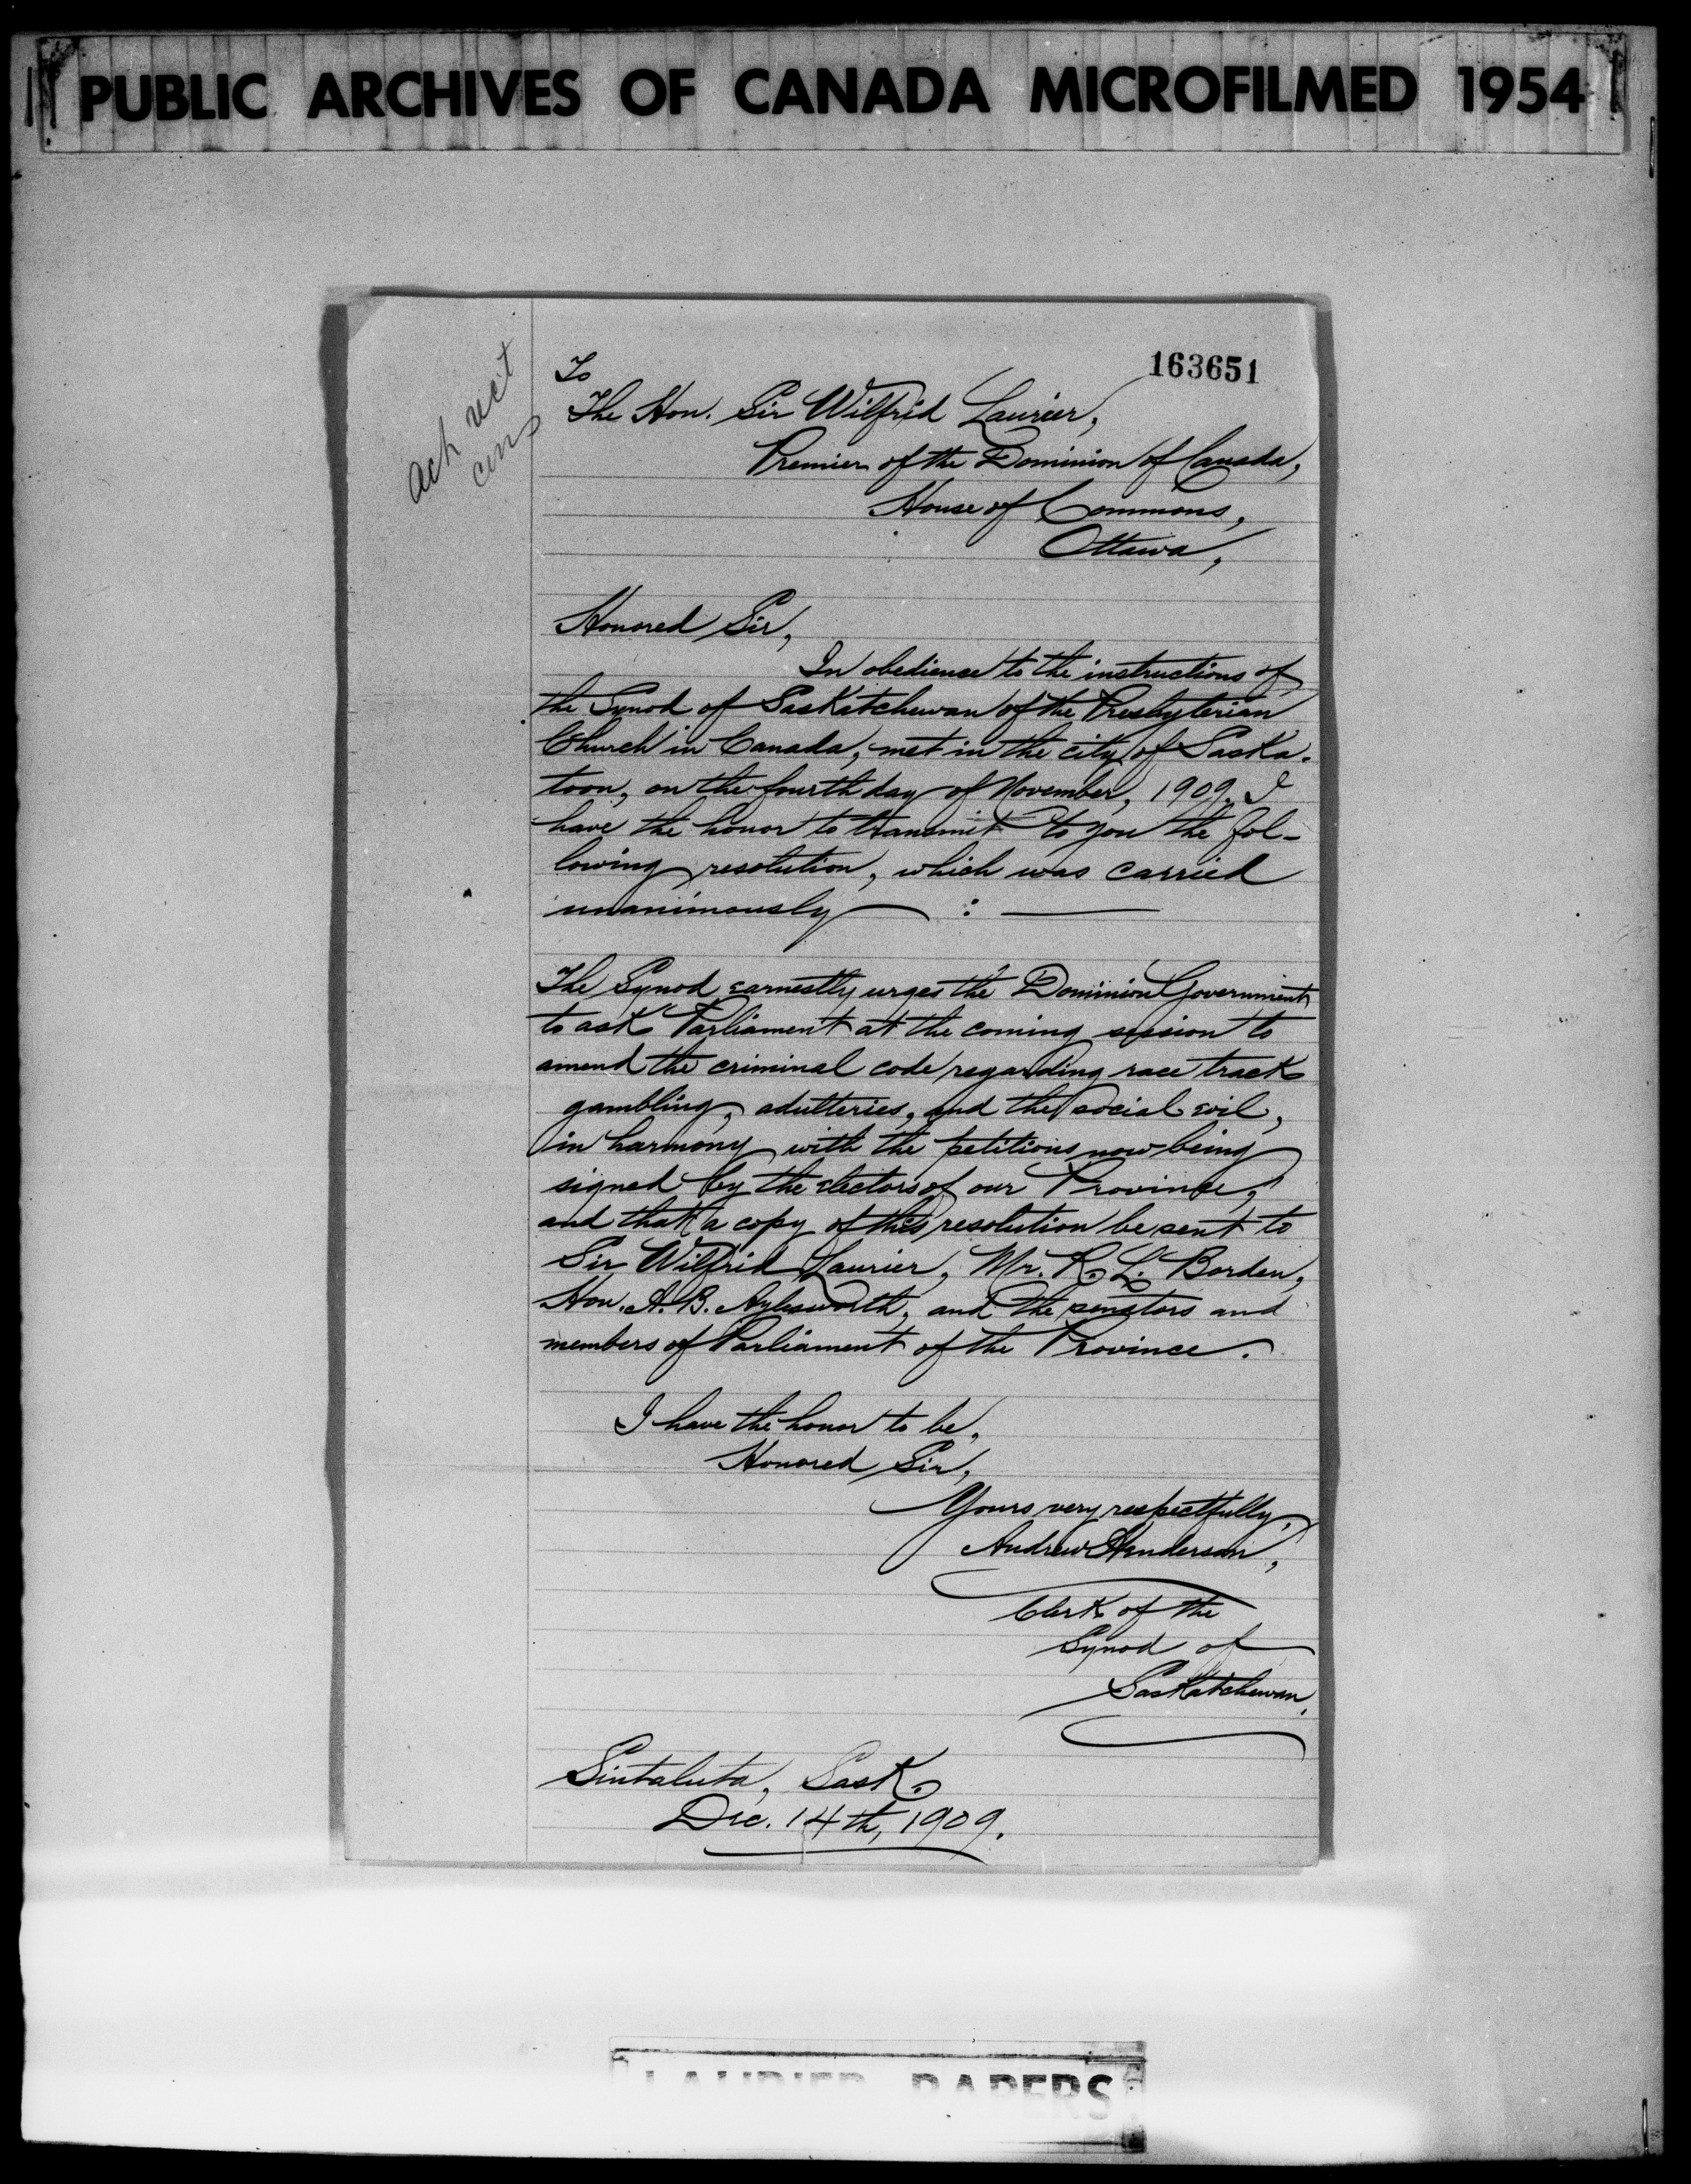 PUBLIC ARCHIVES OF CANADA MICROFILMED 1954
163651
Ack rect
To
The Hon. Sir Wilfrid Laurier,
Premier of the Dominion of Canada,
House of Commons,
Ottawa,
Honored Sir,
In obedience to the instructions of
the Synod of Saskatchewan of the Presbyterian
Church in Canada, met in the city of Saska-
toon, on the fourth day of November, 1909, I
have the honor to transmit to you the fol-
lowing resolution, which was carried
unanimously — : —
The Synod earnestly urges the Dominion Government
to ask Parliament at the coming session to
amend the criminal code regarding race track
gambling, adulteries, and the social evil,
in harmony with the petitions now being
signed by the electors of our Province,
and that a copy of this resolution be sent to
Sir Wilfrid Laurier, Mr. R. L. Borden,
Hon. A. B. Aylesworth, and the senators and
members of Parliament of the Province.
I have the honor to be,
Honored Sir,
Yours very respectfully,
Andrew Henderson,
Clerk of the
Synod of
Saskatchewan.
Sintaluta, Sask.
Dec. 14th, 1909.
LAURIER PAPERS